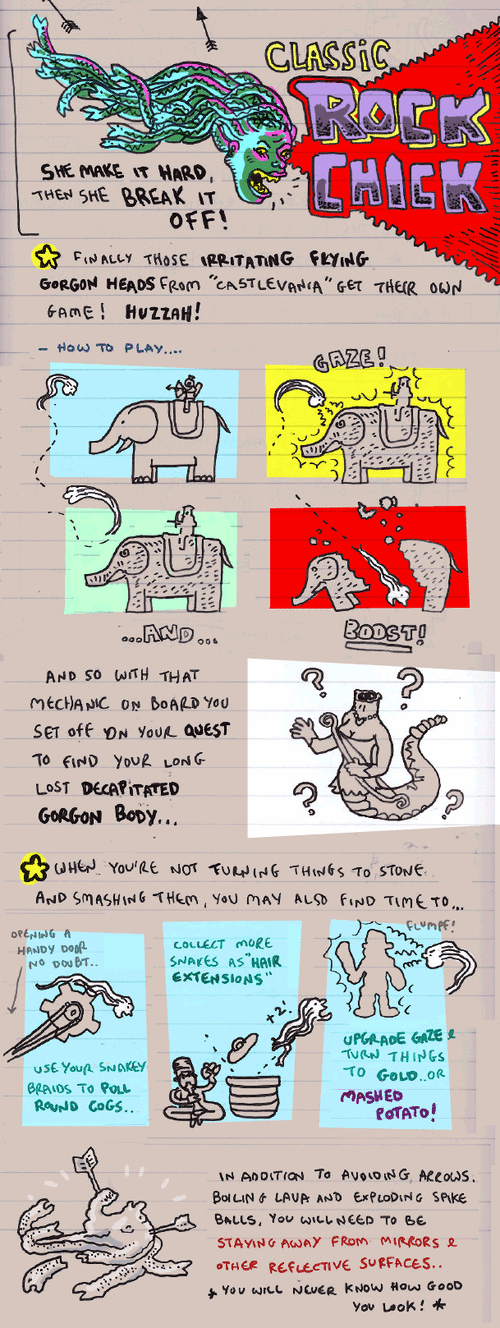 CLASSIC
ROCK
CHICK
SHE MAKE IT HARD,
THEN SHE BREAK IT
OFF!
FINALLY THOSE IRRITATING FLYING
GORGON HEADS FROM "CASTLEVANIA" GET THEIR OWN
GAME! HUZZAH!
- HOW TO PLAY....
GAZE!
...AND...
BOOST!
AND SO WITH THAT
MECHANIC ON BOARD YOU
SET OFF ON YOUR QUEST
TO FIND YOUR LONG
LOST DECAPITATED
GORGON BODY...
? ?
? ?
WHEN YOU'RE NOT TURNING THINGS TO STONE
AND SMASHING THEM, YOU MAY ALSO FIND TIME TO...
OPENING A
HANDY DOOR
NO DOUBT..
USE YOUR SNAKEY
BRAIDS TO PULL
ROUND COGS...
COLLECT MORE
SNAKES AS "HAIR
EXTENSIONS"
+2!
FLUMPF!
UPGRADE GAZE &
TURN THINGS
TO GOLD..OR
MASHED
POTATO!
IN ADDITION TO AVOIDING ARROWS,
BOILING LAVA AND EXPLODING SPIKE
BALLS, YOU WILL NEED TO BE
STAYING AWAY FROM MIRRORS &
OTHER REFLECTIVE SURFACES..
* YOU WILL NEVER KNOW HOW GOOD
YOU LOOK! *